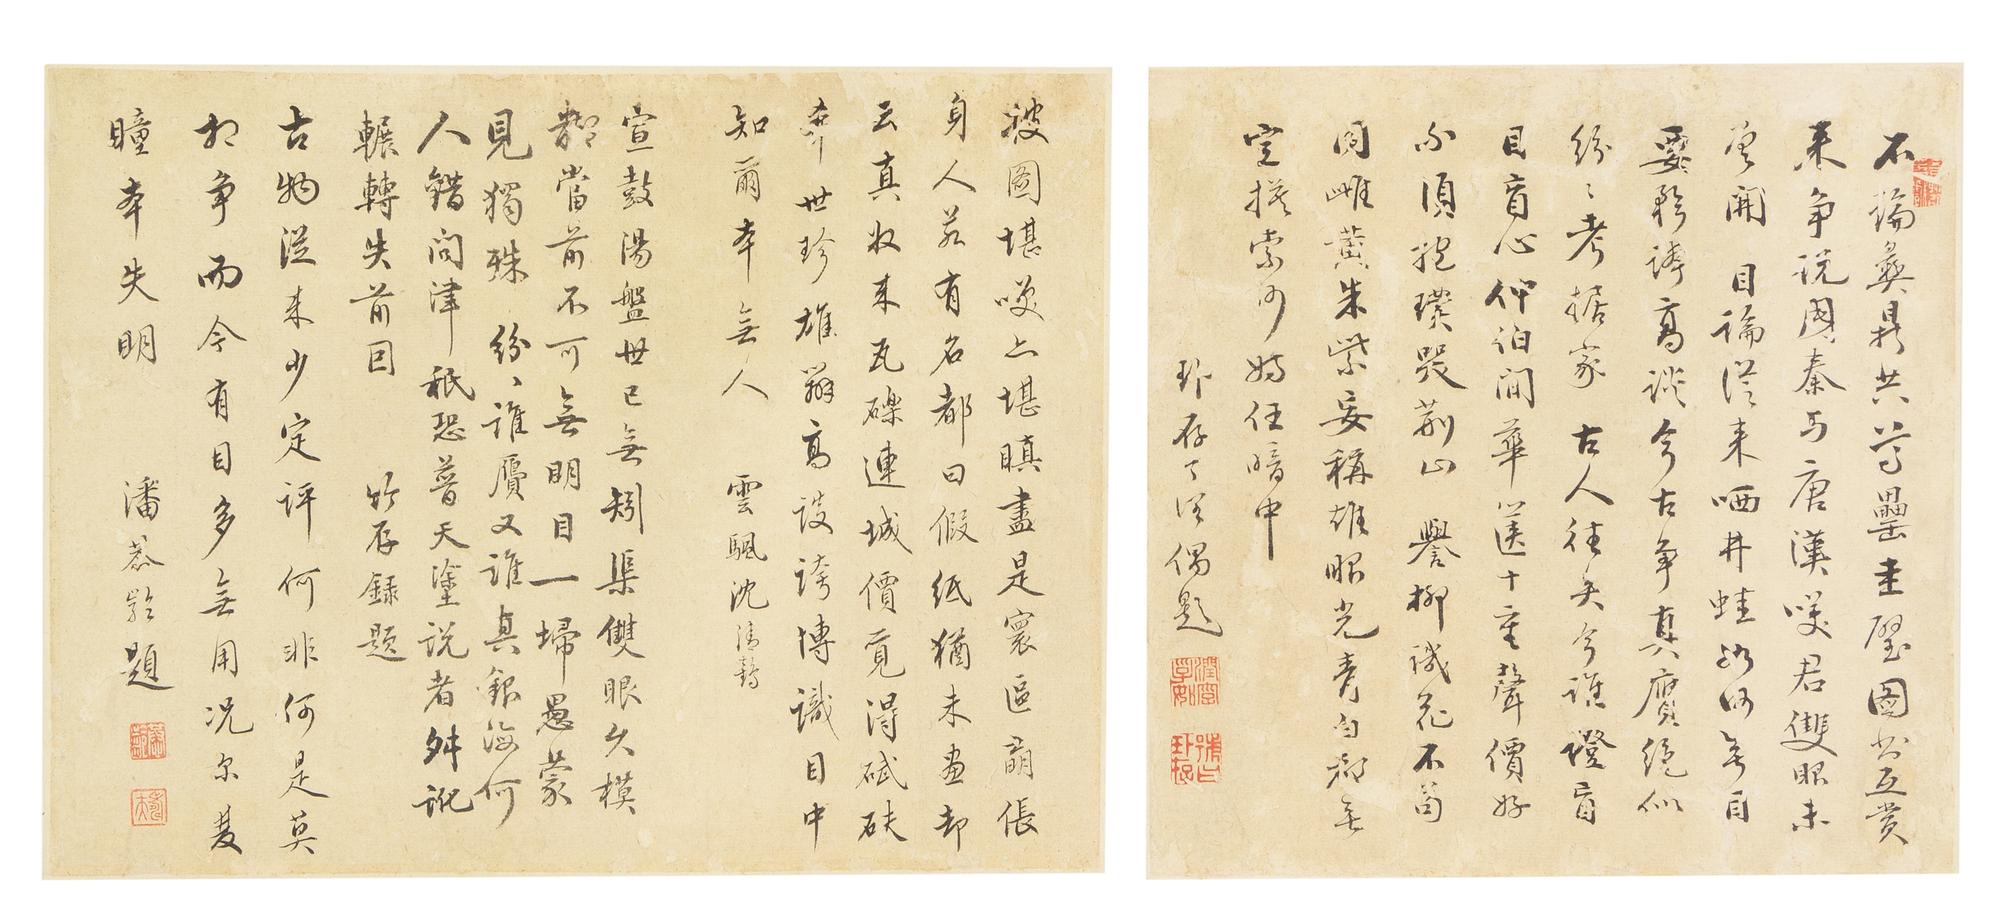 不論彝鼎共尊罍圭璧圖書互賞
來爭說國秦与唐漢咲君雙眼未
曾開 目論從來哂井蛙如何無目
要矜誇高談今古爭真贗絕似
紛〻考据家 古人往矣今誰證盲
目盲心伯仲間華匣十重聲價好
不須抱璞哭荊山 譽柳譏花不苟
同雌黃朱紫妄稱雄眼光青白都無
定摸索何妨任暗中
存 偶題
披圖堪咲亦堪瞋盡是寰區瞽倀
身人苦有名都曰假紙猶未畫却
云真收來瓦礫連城價覓得碔砆
希世珍雄辯高談誇博識目中
知爾本無人 雲騶沈清
宣鼓湯盤世已無矧渠雙眼久模
糊當前不可無明目一埽愚蒙
見獨殊 紛〻誰贗又誰真銀海何
人錯問津秖恐普天塗說者舛訛
輾轉失前因 竹存録題
古物從來少定評何非何是莫
相爭而今有目多無用況尔雙
瞳本失明 潘恭齡題